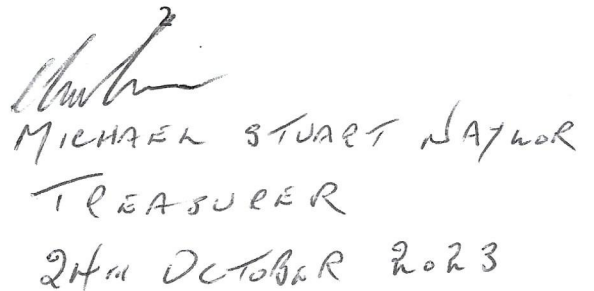 2
MICHAEL STUART NAYLOR
TREASURER
24TH OCTOBER 2023